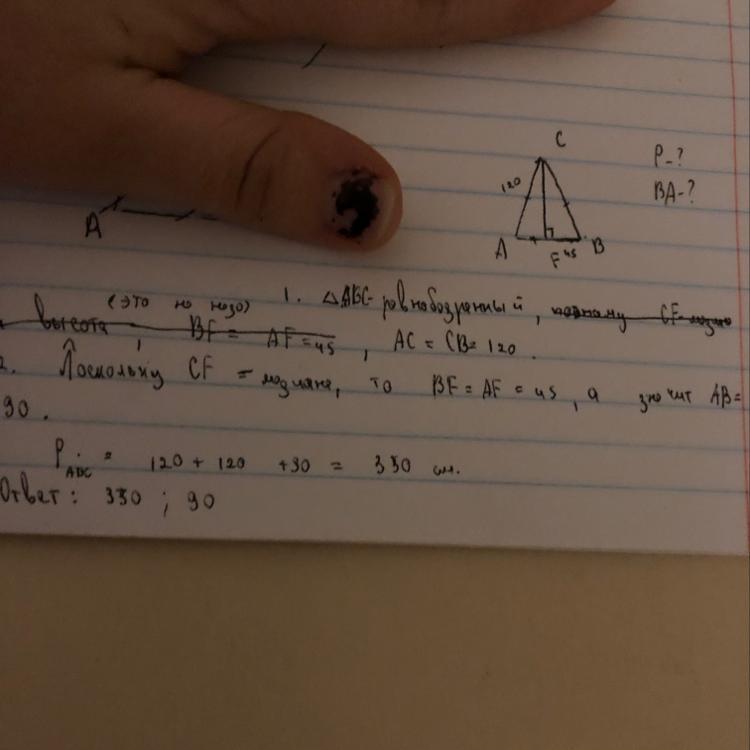 C
120
A
F
45
B
P-?
BA-?
A
(это не надо) 1. △ABC равнобедренный, поэтому CF-медиа
высота, BF = AF = 45, AC = CB = 120.
2. Поскольку CF = медиана, то BF = AF = 45, а значит AB=
90.
P ABC = 120 + 120 + 90 = 330 см.
Ответ: 330 ; 90